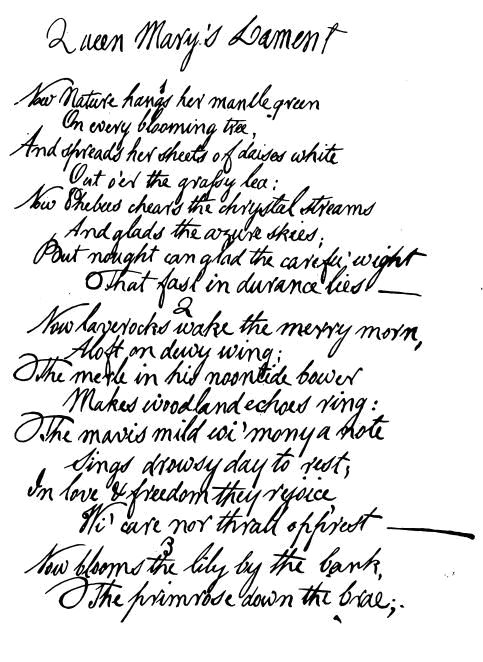 Queen Mary's Lament
1
Now Nature hangs her mantle green
On every blooming tree,
And spreads her sheets o' daises white
Out o'er the grassy lea:
Now Phebus chears the chrystal streams
And glads the azure skies;
But nought can glad the careful wight
That fast in durance lies —
2
Now laverocks wake the merry morn,
Aloft on dewy wing;
The merle in his noontide bower
Makes woodland echoes ring:
The mavis mild wi' mony a note
Sings drowsy day to rest;
In love & freedom they rejoice
Wi' care nor thrall opprest —
3
Now blooms the lily by the bank,
The primrose down the brae;